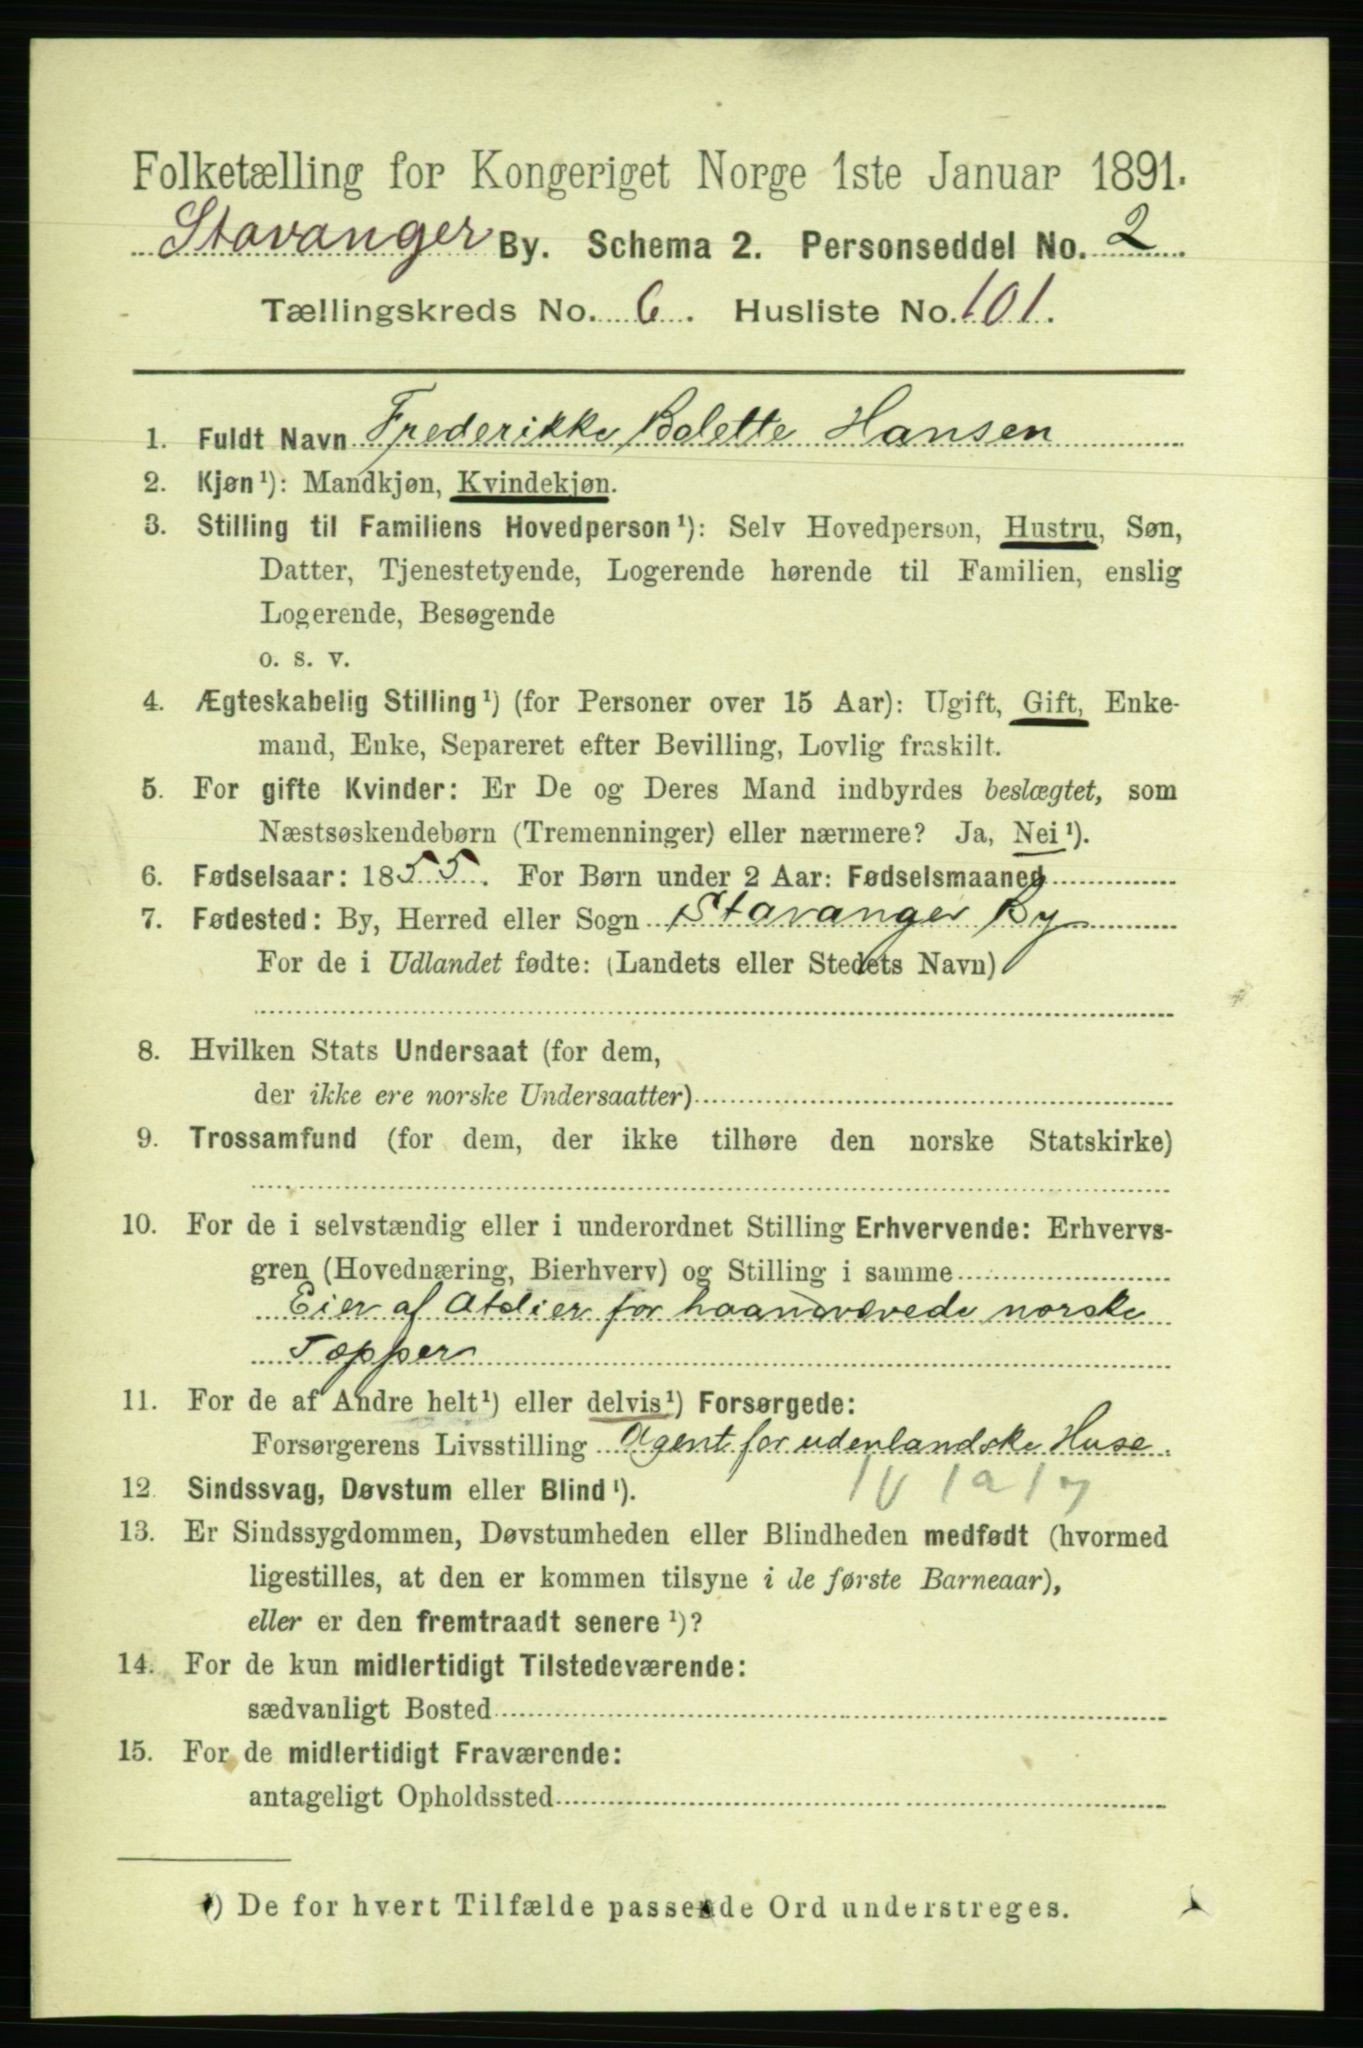 Folketælling for Kongeriget Norge 1ste Januar 1891.
Stavanger By. Schema 2. Personseddel No. 2
Tællingskreds No. 6. Husliste No. 101.
1. Fuldt Navn Frederikke Bolette Hansen
2. Kjøn ¹): Mandkjøn, Kvindekjøn.
3. Stilling til Familiens Hovedperson ¹): Selv Hovedperson, Hustru, Søn,
Datter, Tjenestetyende, Logerende hørende til Familien, enslig
Logerende, Besøgende
o. s. v.
4. Ægteskabelig Stilling ¹) (for Personer over 15 Aar): Ugift, Gift, Enke-
mand, Enke, Separeret efter Bevilling, Lovlig fraskilt.
5. For gifte Kvinder: Er De og Deres Mand indbyrdes beslægtet, som
Næstsøskendebørn (Tremenninger) eller nærmere? Ja, Nei ¹).
6. Fødselsaar: 1855. For Børn under 2 Aar: Fødselsmaaned
7. Fødested: By, Herred eller Sogn Stavanger By
For de i Udlandet fødte: (Landets eller Stedets Navn)
8. Hvilken Stats Undersaat (for dem,
der ikke ere norske Undersaatter)
9. Trossamfund (for dem, der ikke tilhøre den norske Statskirke)
10. For de i selvstændig eller i underordnet Stilling Erhvervende: Erhvervs-
gren (Hovednæring, Bierhverv) og Stilling i samme
Eier af Atelier for haandvævede norske
Tæpper
11. For de af Andre helt ¹) eller delvis ¹) Forsørgede:
Forsørgerens Livsstilling Agent for udenlandske Huse.
12. Sindssvag, Døvstum eller Blind ¹).
13. Er Sindssygdommen, Døvstumheden eller Blindheden medfødt (hvormed
ligestilles, at den er kommen tilsyne i de første Barneaar),
eller er den fremtraadt senere ¹)?
14. For de kun midlertidigt Tilstedeværende:
sædvanligt Bosted
15. For de midlertidigt Fraværende:
antageligt Opholdssted
¹) De for hvert Tilfælde passende Ord understreges.